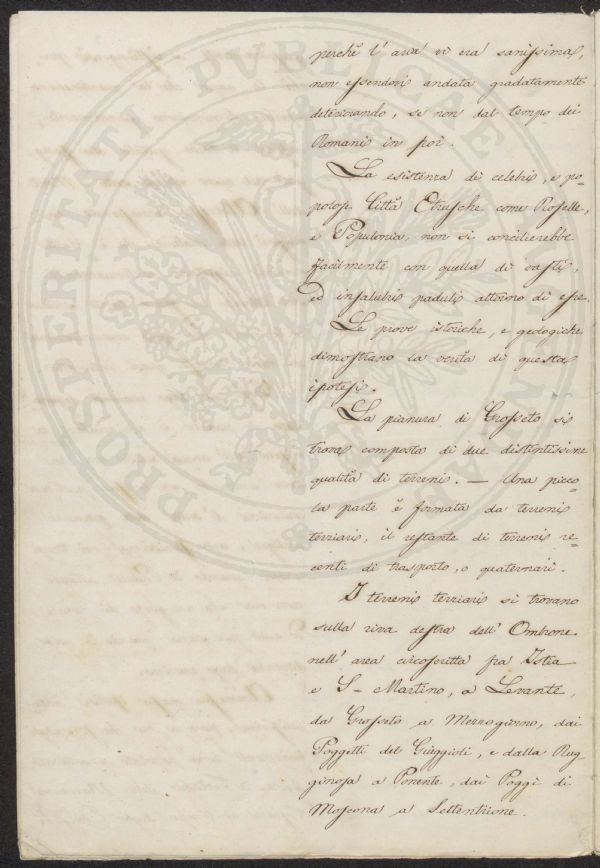 perchè l'aria vi era sanissima,
non essendovi andata gradatamente
deteriorando, se non dal tempo dei
Romani in poi.
La esistenza di celebri, e po-
polose Città Etrusche come Roselle,
e Populonia, non si concilierebbe
facilmente con quella di vasti,
ed insalubri paduli attorno di esse.
Le prove istoriche, e geologiche
dimostrano la verità di questa
ipotesi.
La pianura di Grosseto si
trova composta di due distintissime
qualità di terreni. — Una picco-
la parte è formata da terreni
terziari, il restante di terreni re-
centi di trasporto, o quaternari.
I terreni terziari si trovano
sulla riva destra dell'Ombrone
nell'area circoscritta fra Istia
e S. Martino, a Levante,
da Grosseto a Mezzogiorno, dai
Poggetti del Guiggioli, e dalla Rug-
ginosa a Ponente, dai Poggi di
Moscona a Settentrione.
PROSPERITATI PVBLICAE